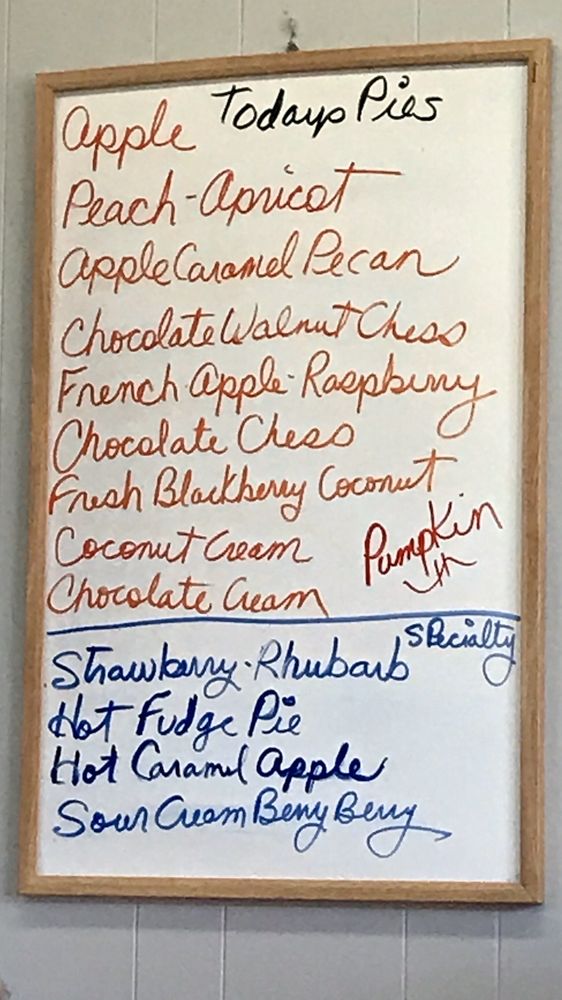 Todays Pies
Apple
Peach-Apricot
Apple Caramel Pecan
Chocolate Walnut Chess
French Apple-Raspberry
Chocolate Chess
Fresh Blackberry Coconut
Coconut Cream
Pumpkin
Chocolate Cream
Specialty
Strawberry-Rhubarb
Hot Fudge Pie
Hot Caramel Apple
Sour Cream Berry Berry